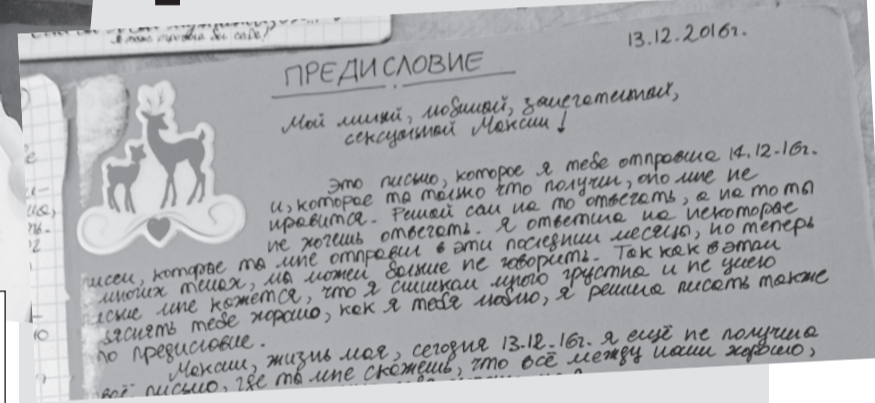 Я тоже
13.12.2016г.
ПРЕДИСЛОВИЕ
Мой милый, любимый, замечательный,
сексуальный Максим!
Это письмо, которое я тебе отправила 14.12-16г.
и, которое ты только что получил, оно мне не
нравится. Решай сам на то отвечать, а на то ты
не хочешь отвечать. Я ответила на некоторые
писем, которые ты мне отправил в эти последнии месяцы, но теперь
многих темах, мы можем больше не говорить. Так как в этом
мне кажется, что я слишком много грустна и не умею
яснять тебе хорошо, как я тебя люблю, я решила писать также
по предисловие.
Максим, жизнь моя, сегодня 13.12-16г. я ещё не получила
воё письмо, где ты мне скажешь, что всё между нами хорошо,